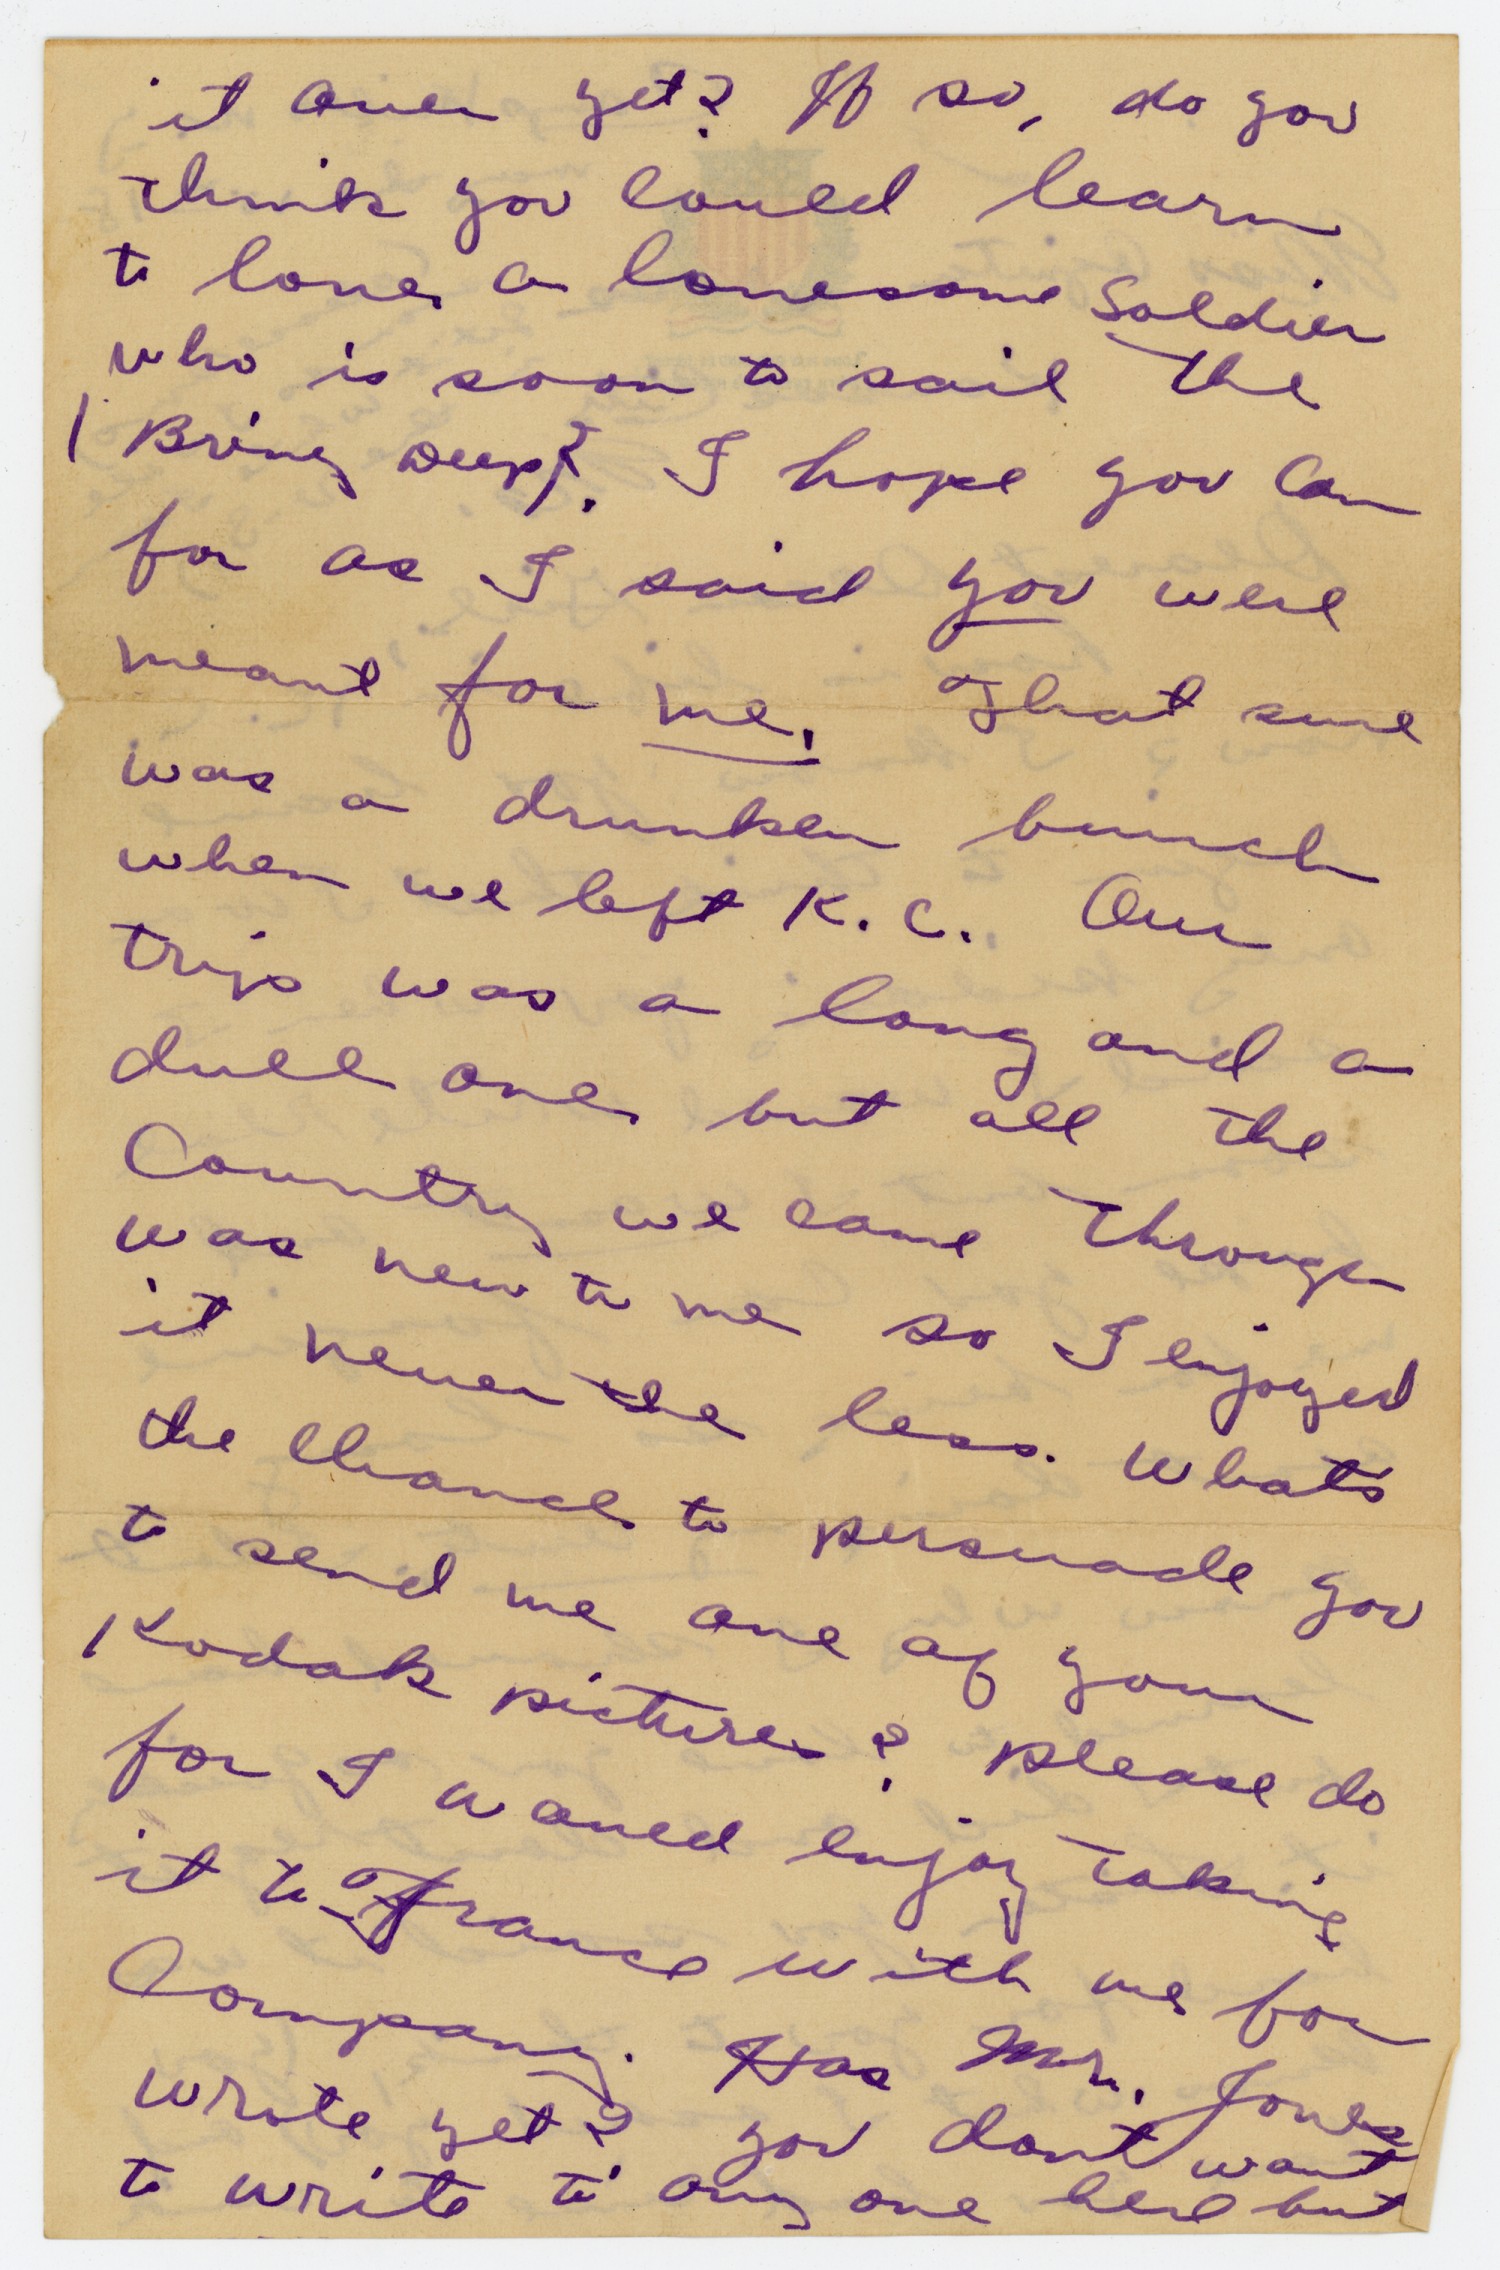 it over yet? If so, do you
think you could learn
to love a lonesome soldier
who is soon to sail the
Briny Deep?. I hope you can
for as I said you were
meant for me. That sure
was a drunken bunch
when we left K.C. Our
trip was a long and a
dull one, but all the
Country we came through
was new to me so I enjoyed
it never the less. Whats
the chance to persuade you
to send me one of your
Kodak pictures? please do
for I would enjoy taking
it to France with me for
Company. Has Mr. Jones
wrote yet? you dont want
to write to any one here but